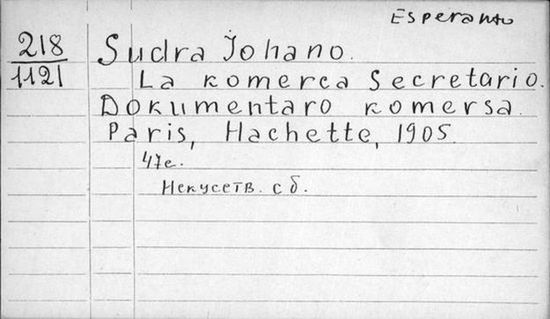 Esperanto
218
1121
Sudra Johano.
La komerca Secretario.
Dokumentaro komersa.
Paris, Hachette, 1905.
47e.
Искусств. сб.